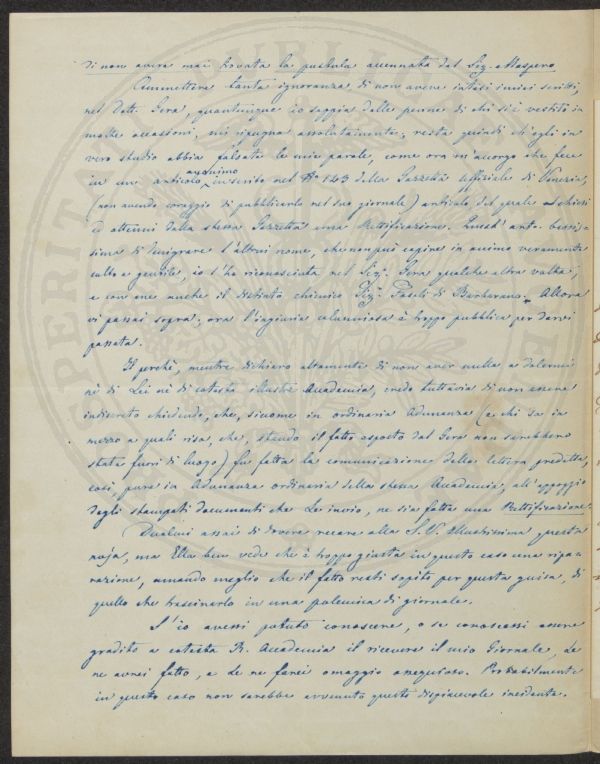 di non avere mai trovata la pustula accennata dal Sig. Maspero
Ammettere tanta ignoranza di non avere intesi i miei scritti,
nel Dott. Gera, quantunque io sappia delle penne di chi si è vestito in
molte occasioni, mi ripugna assolutamente; resta quindi ch'egli in
vero studio abbia falsate le mie parole, come ora m'accorgo che fece
in un articolo anonimo inscrito nel N.° 123 della Gazzetta Uffiziale di Venezia,
(non avendo coraggio di pubblicarlo nel suo giornale) articolo del quale chiesi
ed ottenni dalla stessa Gazzetta una Rettificazione. Quest' arte bassis=
sima di denigrare l'altrui nome, che non può capire in animo veramente
colto e gentile, io l'ho riconosciuta nel Sig.r Gera qualche altra volta,
e con me anche il distinto chimico Sig.r Fasoli di Barbarano. Allora
vi passai sopra; ora l'ingiuria calunniosa è troppo pubblica per darvi
passata.
Il perchè, mentre dichiaro altamente di non aver nulla a dolermi
nè di Lei nè di cotesta illustre Accademia, credo tuttavia di non essere
indiscreto chiedendo, che, siccome in ordinaria Adunanza (e chi sa in
mezzo a quali risa, che, stando il fatto esposto dal Gera non sarebbero
state fuori di luogo) fu fatta la comunicazione della lettera predetta,
così, pure in Adunanza ordinaria della stessa Accademia, all'appoggio
degli stampati documenti che Le invio, ne sia fatta una Rettificazione.
Duolmi assai di dovere recare alla S. V. Illustrissima questa
noja, ma Ella ben vede che è troppo giusta in questo caso una ripa=
razione, amando meglio che il fatto resti sopito per questa guisa, di
quello che trascinarlo in una polemica di giornale.
S'io avessi potuto conoscere, o se conoscessi essere
gradito a cotesta R. Accademia il ricevere il mio Giornale, Le
ne avrei fatto, e Le ne farei omaggio ossequioso. Probabilmente
in questo caso non sarebbe avvenuto questo dispiacevole incidente.